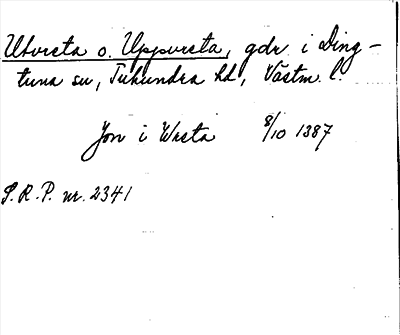 Utvrsta o. Uppvrsta, gdr i Ding-
tuna sn, Tuhundra hd, Västm. l.
Jon i Wrsta 8/10 1387
S.R.P. nr. 2341